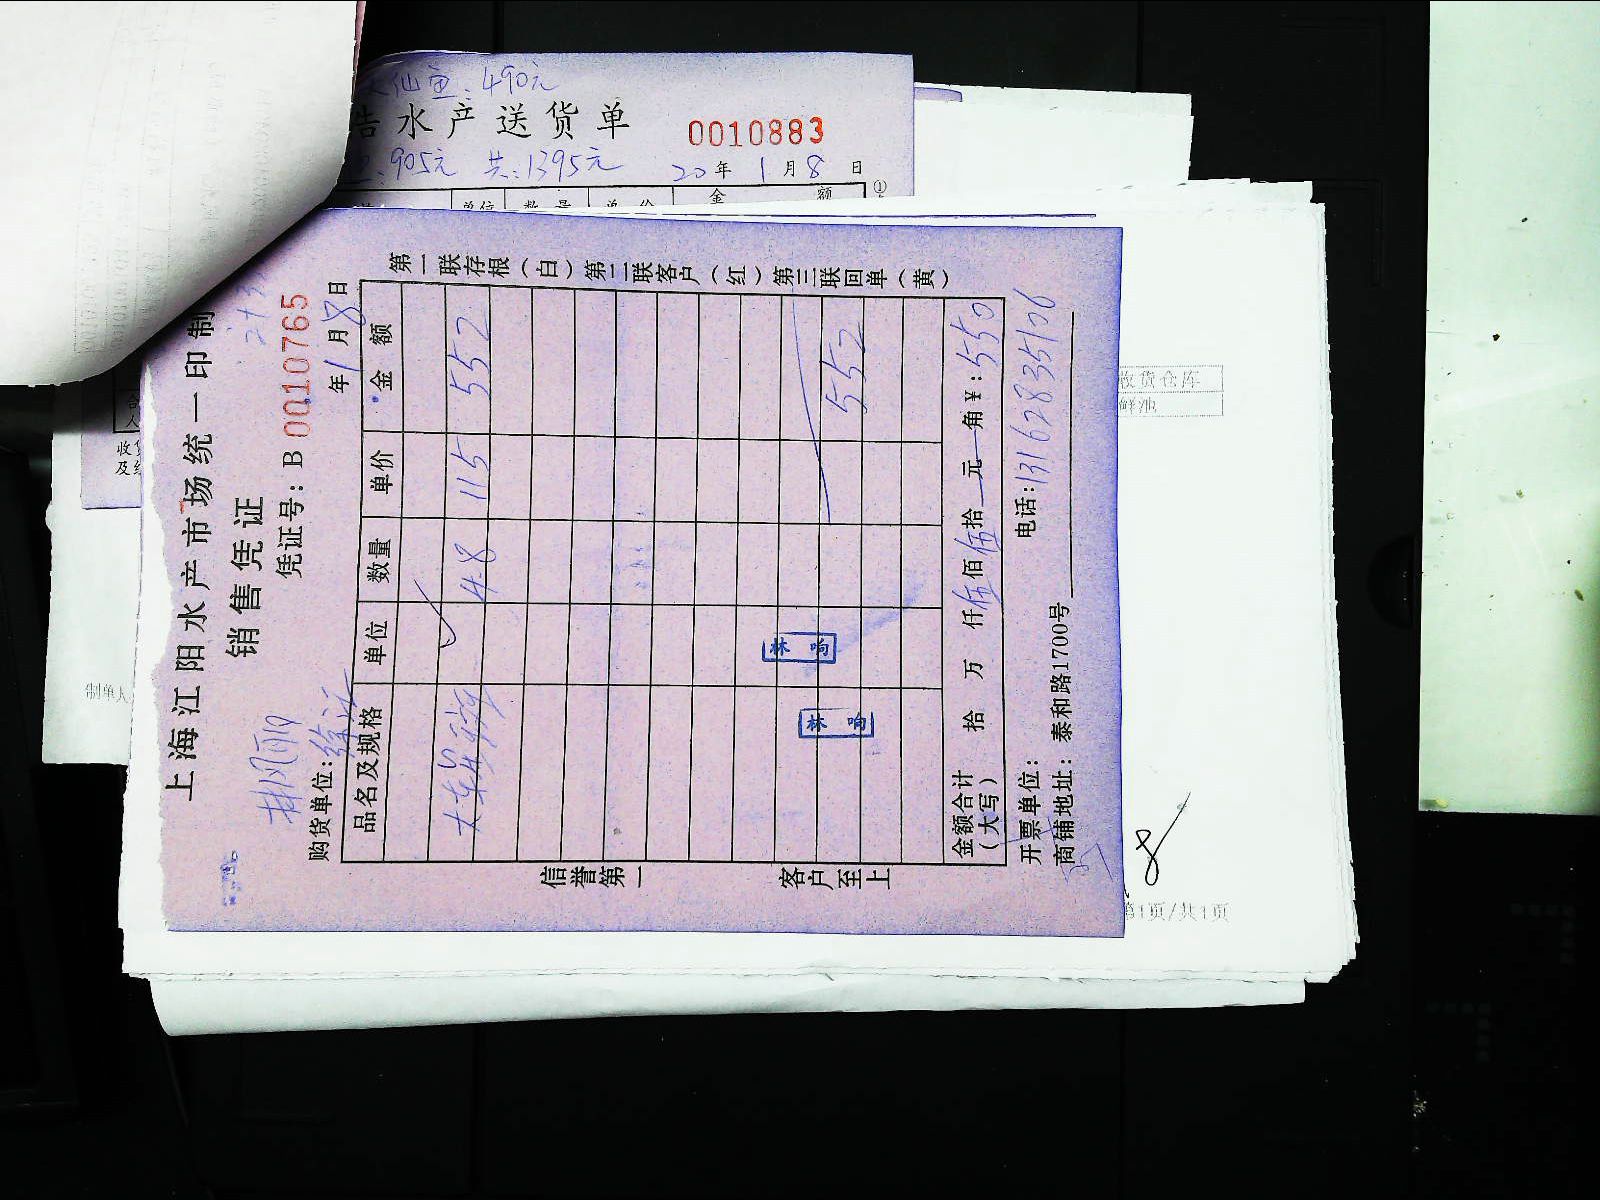 仙鱼:490元
浩水产送货单 0010883
:905元 共:1395元 20年1月8日
单位 数量 单价 金额 ①
上海江阳水产市场统一印制
销售凭证
凭证号:B 0010765
购货单位:徐
年1月8日
品名及规格 单位 数量 单价 金额
4.8 115 552
552
林鸣
林鸣
金额合计(大写) 拾 万 仟伍佰伍拾 元 角¥:550
开票单位: 电话:13162835106
商铺地址:泰和路1700号
第一联存根(白)第二联客户(红)第三联回单(黄)
信誉第一 客户至上
收货仓库
鲜池
制单人
第1页/共1页
8